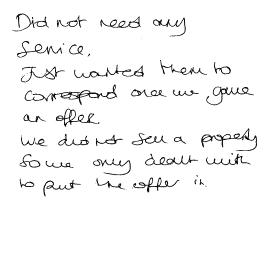 Did not need any
Service.
Just wanted them to
correspond once we gave
an offer.
We did not sell a property
so we only dealt with
to put the offer in.